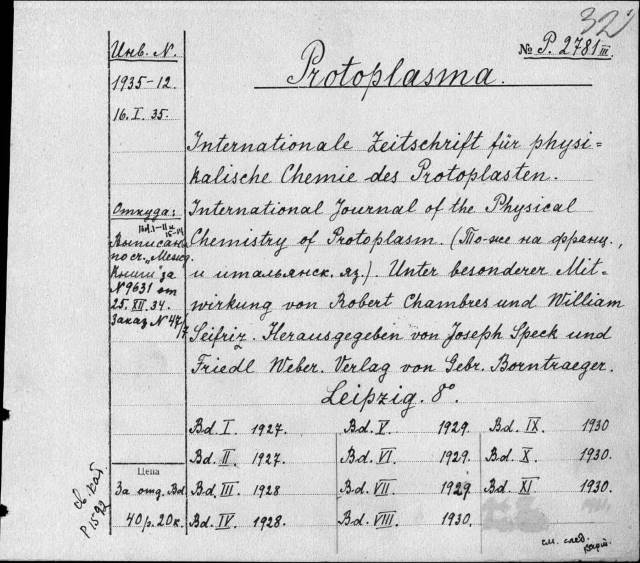 32
№ P. 2781 III.
Protoplasma.
Инв. N.
1935-12.
16. I. 35.
Internationale Zeitschrift für physi=
kalische Chemie des Protoplasten.
International Journal of the Physical
Chemistry of Protoplasm. (То-же на франц.,
и итальянск. яз.). Unter besonderer Mit-
wirkung von Robert Chambres und William
Seifriz. Herausgegeben von Joseph Spek und
Friedl Weber. Verlag von Gebr. Borntraeger.
Leipzig. 8°.
Откуда:
Выписан
по сч. „Межд.
Книги" за
N 9631 от
25. XII. 34.
Заказ N 47/7
Bd. I. 1927. Bd. V. 1929. Bd. IX 1930
Bd. II. 1927. Bd. VI. 1929. Bd. X. 1930.
Bd. III 1928 Bd. VII 1929 Bd. XI 1930.
Bd. IV 1928. Bd. VIII 1930.
Цена
За отд. Bd
40 р. 20 к.
P 1592
см. след.
карт.